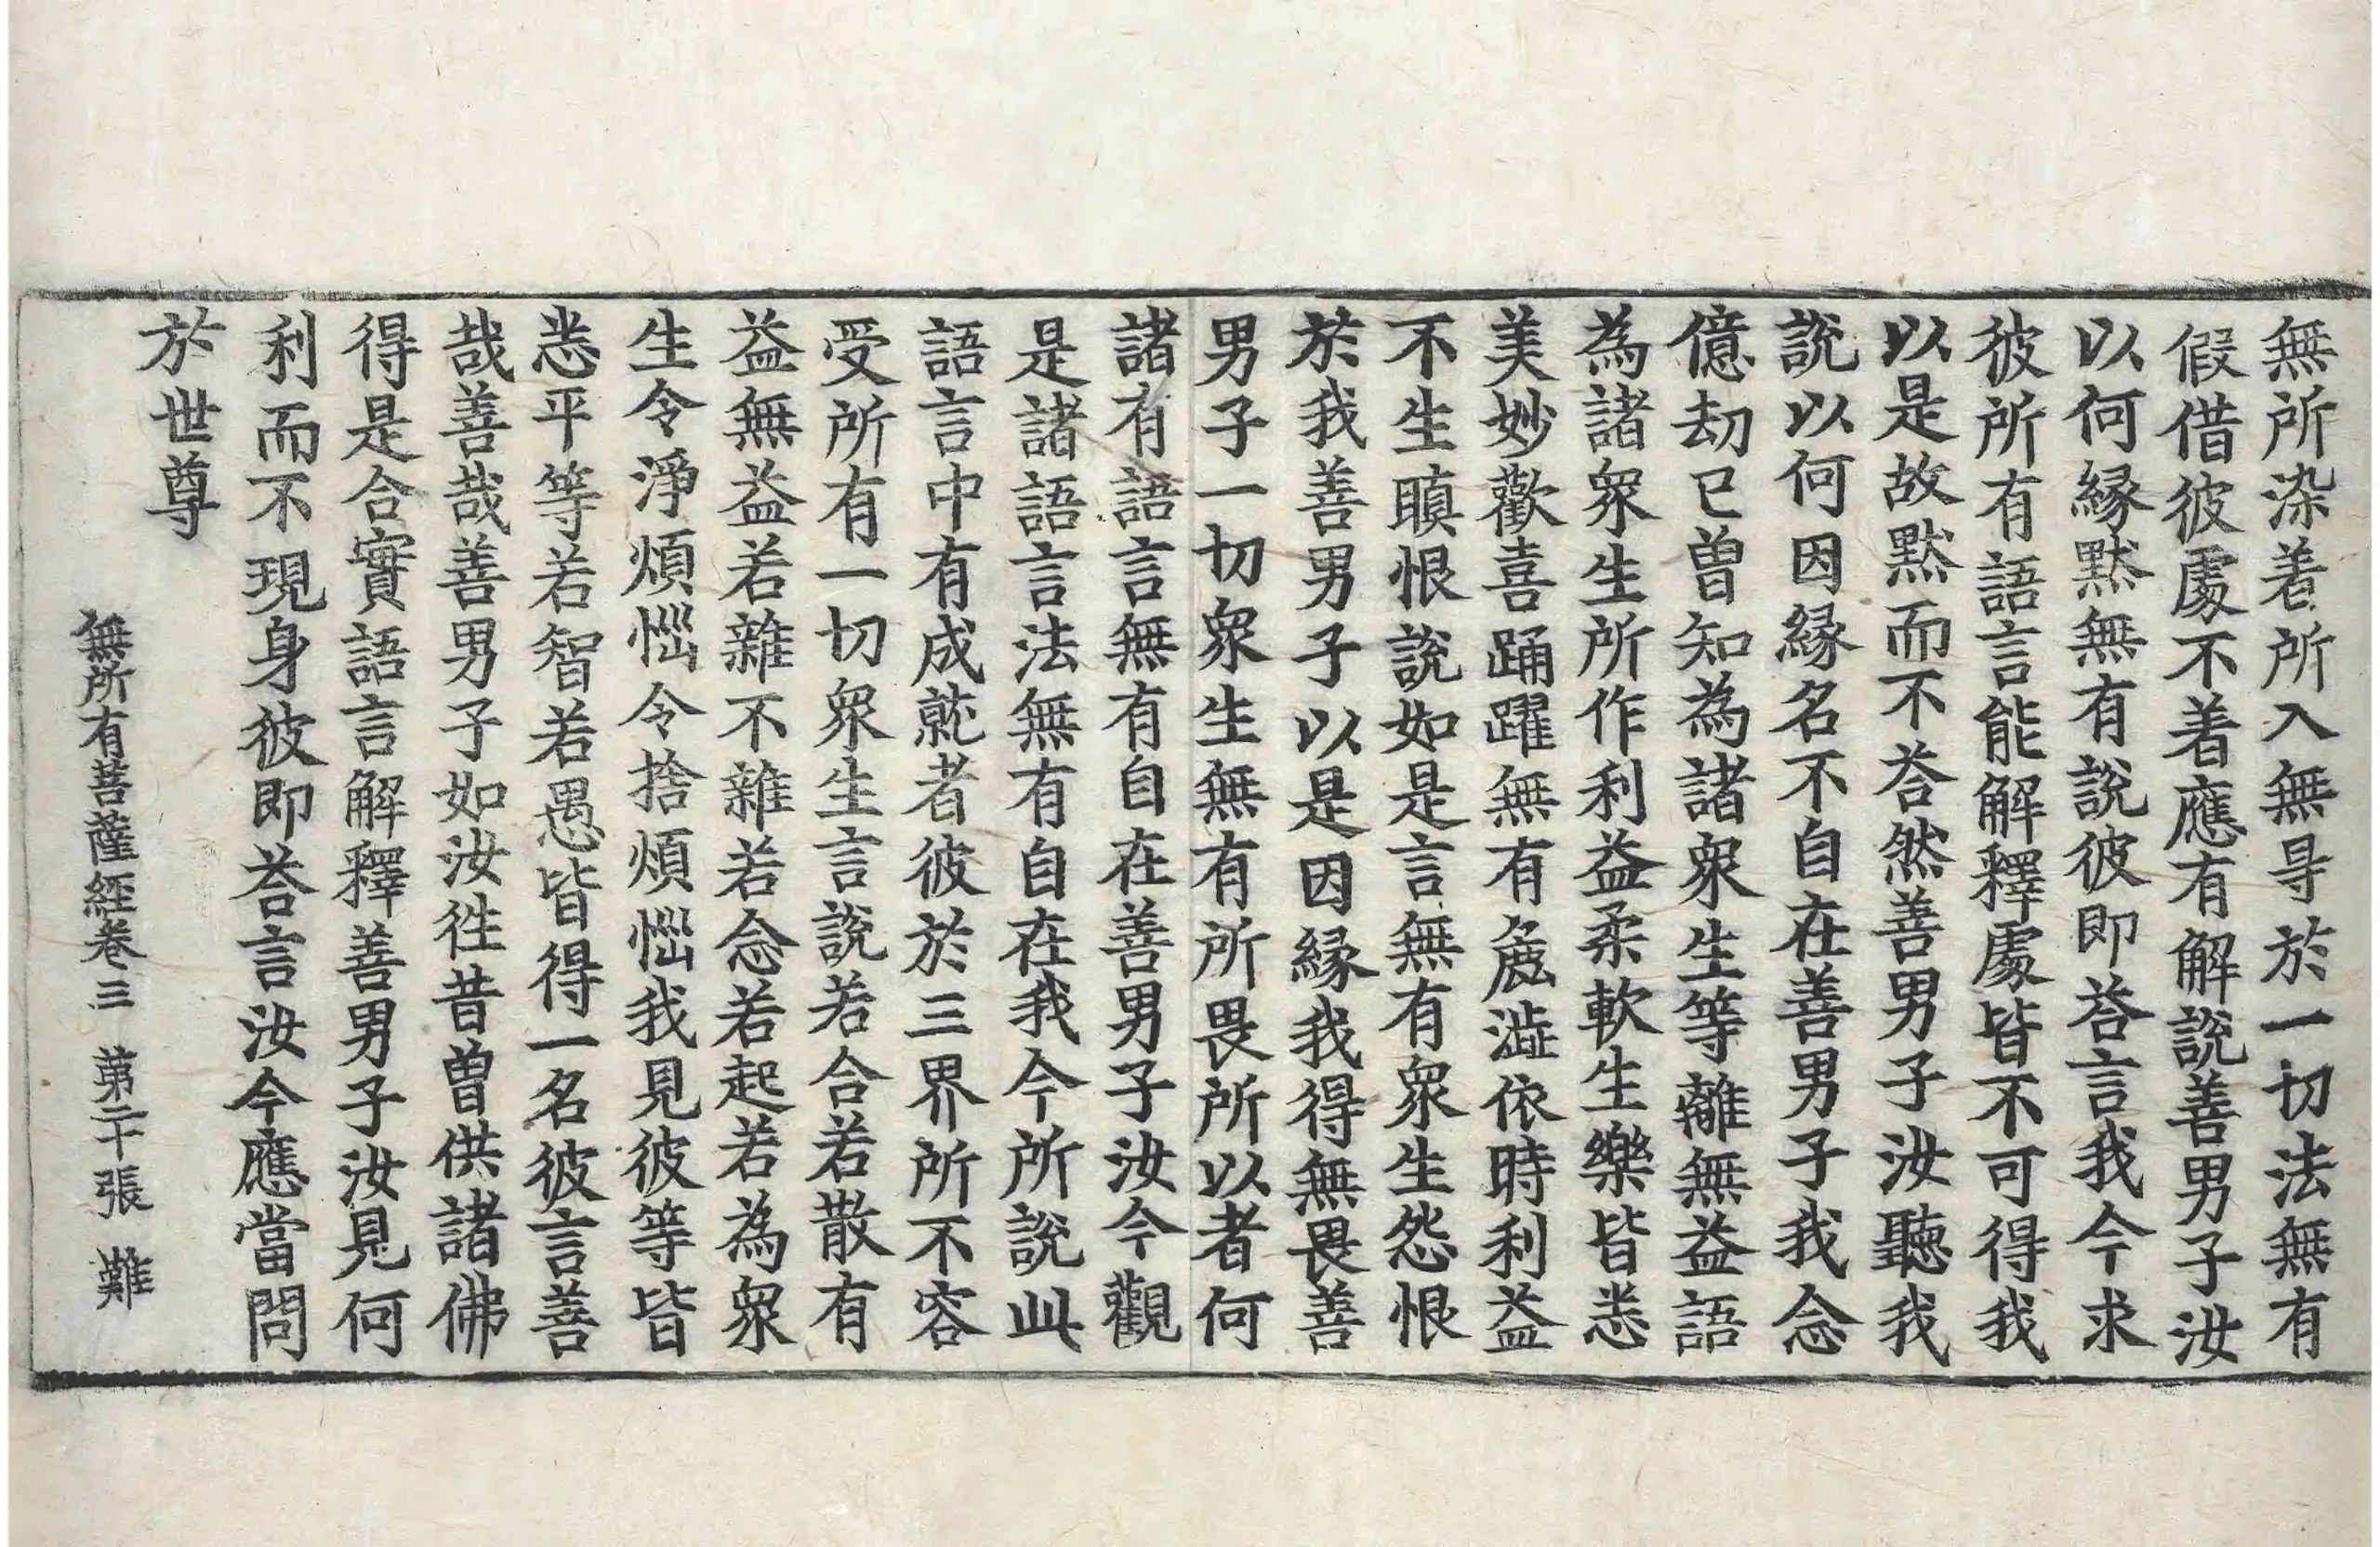 無所染着所入無㝵於一切法無有
假借彼處不着應有解說善男子汝
以何緣黙無有說彼即荅言我今求
彼所有語言能解釋處皆不可得我
以是故黙而不荅然善男子汝聽我
說以何因緣名不自在善男子我念
億劫已曾知為諸衆生等離無益語
為諸衆生所作利益柔軟生樂皆悉
美妙歡喜踊躍無有麁澁依時利益
不生瞋恨說如是言無有衆生怨恨
於我善男子以是因緣我得無畏善
男子一切衆生無有所畏所以者何
諸有語言無有自在善男子汝今觀
是諸語言法無有自在我今所說此
語言中有成就者彼於三界所不容
受所有一切衆生言說若合若散有
益無益若雜不雜若念若起若為衆
生令淨煩惱令捨煩惱我見彼等皆
悉平等若智若愚皆得一名彼言善
哉善哉善男子如汝徃昔曾供諸佛
得是合實語言解釋善男子汝見何
利而不現身彼即荅言汝今應當問
於世尊
無所有菩薩經卷三 苐二十張 難